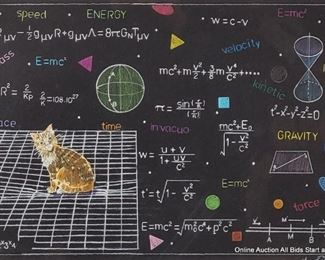 speed ENERGY w=c-v E=mc²
μν - ½gμνR + gμνΛ = 8πGNTμν
velocity
E=mc²
mc²+m v²/2+3/8 m v⁴/c²+....
kinetic
R² = 2/κρ 2/R = 108.10²⁷
t²-x²-y²-z²=0
time in vacuo
mc²+E₀ / √1-v²/c²
GRAVITY
w = u+v / 1+uv/c²
t'=t√1-v²/c²
E=mc²
force
E=mc²=√m₀²c⁴+p²c²
A M B
Online Auction All Bids Start a